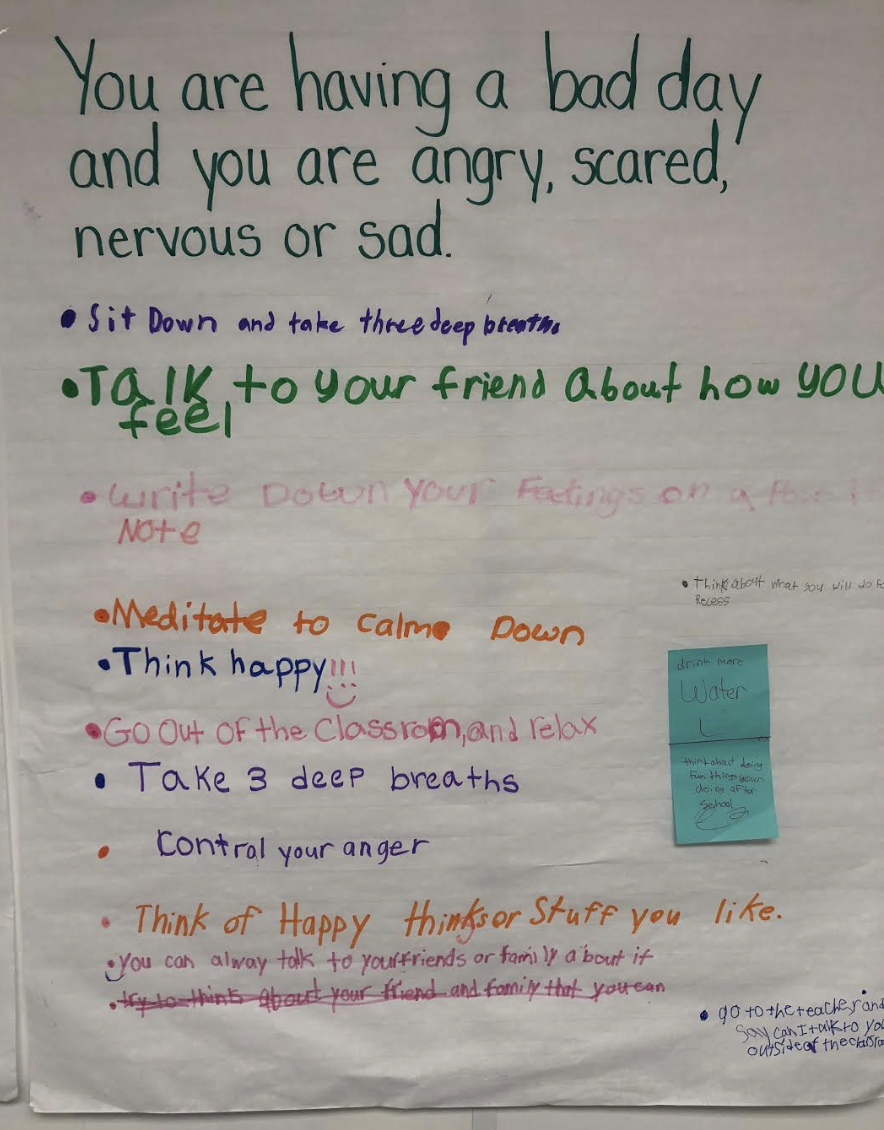 You are having a bad day
and you are angry, scared,
nervous or sad.
• Sit Down and take three deep breaths
• Talk to your friend about how you
feel
• Write Down your Feelings on a
Note
• Think about what you will do
Recess
• Meditate to calme Down
• Think happy!!!
drink more
Water
• Go Out OF the Classrom, and relax
• Take 3 deep breaths
think about doing
fun things
doing after
school
• Control your anger
• Think of Happy thinksor Stuff you like.
• you can alway talk to your friends or family about it
• try to think about your friend and family that you can
• go to the teacher and
say can I talk to
outside of the